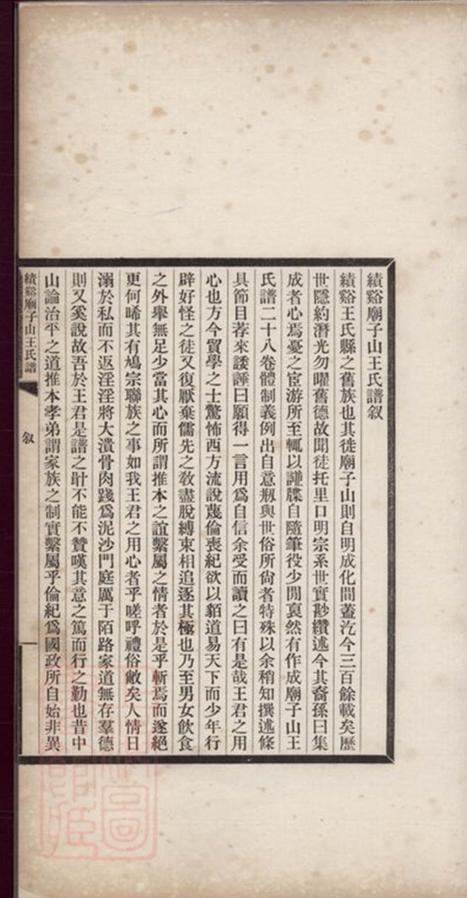 績谿廟子山王氏譜叙
績谿王氏縣之舊族也其徙廟子山則自明成化間蓋汔今三百餘載矣歷
世隱約潛光勿曜舊德故聞徒托里口明宗系世實尠纘述今其裔孫曰集
成者心焉憂之宦游所至輒以譜牒自隨筆役少閒裒然有作成廟子山王
氏譜二十八卷體制義例出自意刱與世俗所尙者特殊以余稍知撰述條
具節目荐來諉諈曰願得一言用爲自信余受而讀之曰有是哉王君之用
心也方今貿學之士驚怖西方流說蔑倫喪紀欲以貊道易天下而少年行
辟好怪之徒又復厭棄儒先之敎盡脫縛束相追逐其極也乃至男女飮食
之外舉無足少當其心而所謂推本之誼繫屬之情者於是乎斬焉而遂絕
更何晞其有鳩宗聯族之事如我王君之用心者乎嗟呼禮俗敝矣人情日
溺於私而不返淫淫將大潰骨肉踐爲泥沙門庭厲于陌路家道無存羣德
則又奚說故吾於王君是譜之耐不能不贊嘆其意之篤而行之勤也昔中
山論治平之道推本孝弟謂家族之制實繫屬乎倫紀爲國政所自始非異
績谿廟子山王氏譜
叙
一